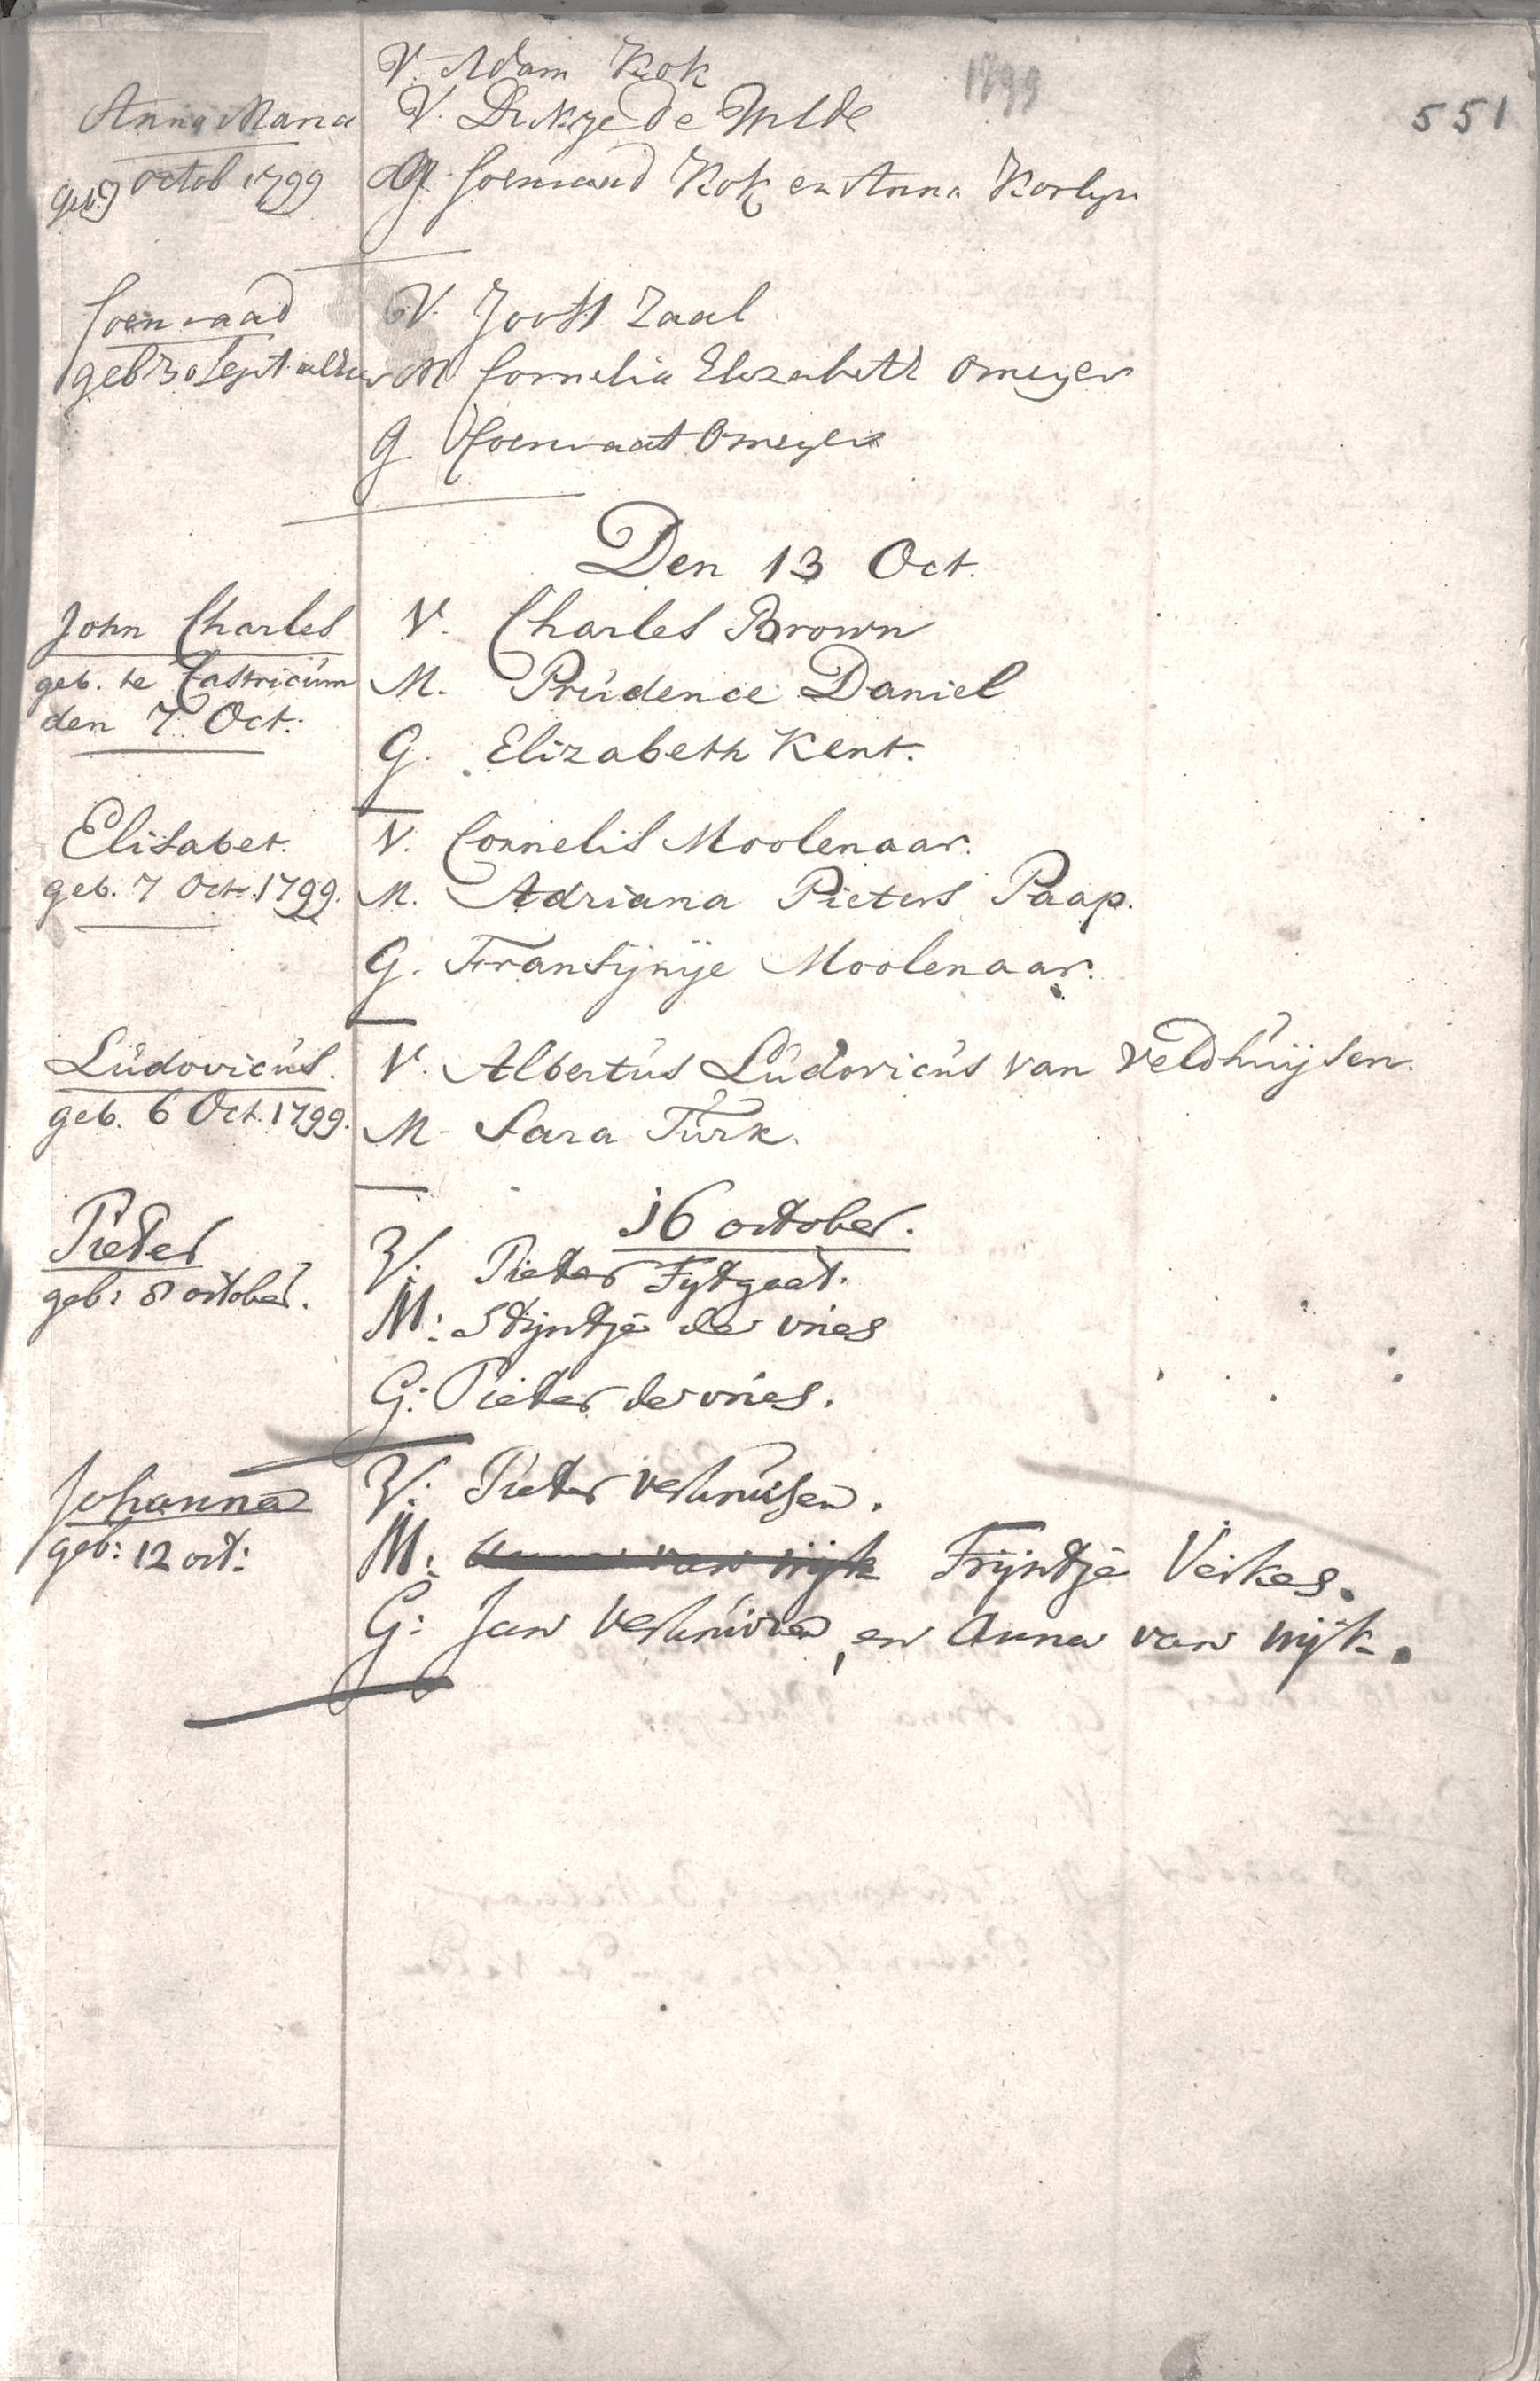 1799
551
V. Adam Kok
Anna Maria V. Dirkje de Wilde
geb. octob 1799 G. Coenraad Kok en Anna Korlyn
Coenraad V. Joost Zaal
geb 30 Sept M Cornelia Elizabeth Omeyer
G Coenraat Omeyer
Den 13 Oct.
John Charles V. Charles Brown
geb. te Castricum M. Prudence Daniel
den 7. Oct:
G. Elizabeth Kent.
Elisabet. V. Cornelis Moolenaar.
geb. 7 Oct. 1799. M. Adriana Pieters Paap.
G. Fransijnije Moolenaar.
Ludovicus. V. Albertus Ludovicus van Veldhuijsen.
geb. 6 Oct. 1799. M. Sara Turk.
16 october.
Pieter V. Pieter Fytgaat.
geb: 8 october. M: Stijntje de vries
G: Pieter de vries.
Johanna V: Pieter Verhuisen.
geb: 12 oct: M: Anna van wijk Trijntje Verkes.
G: Jan Verhuisen, en Anna van wijk.